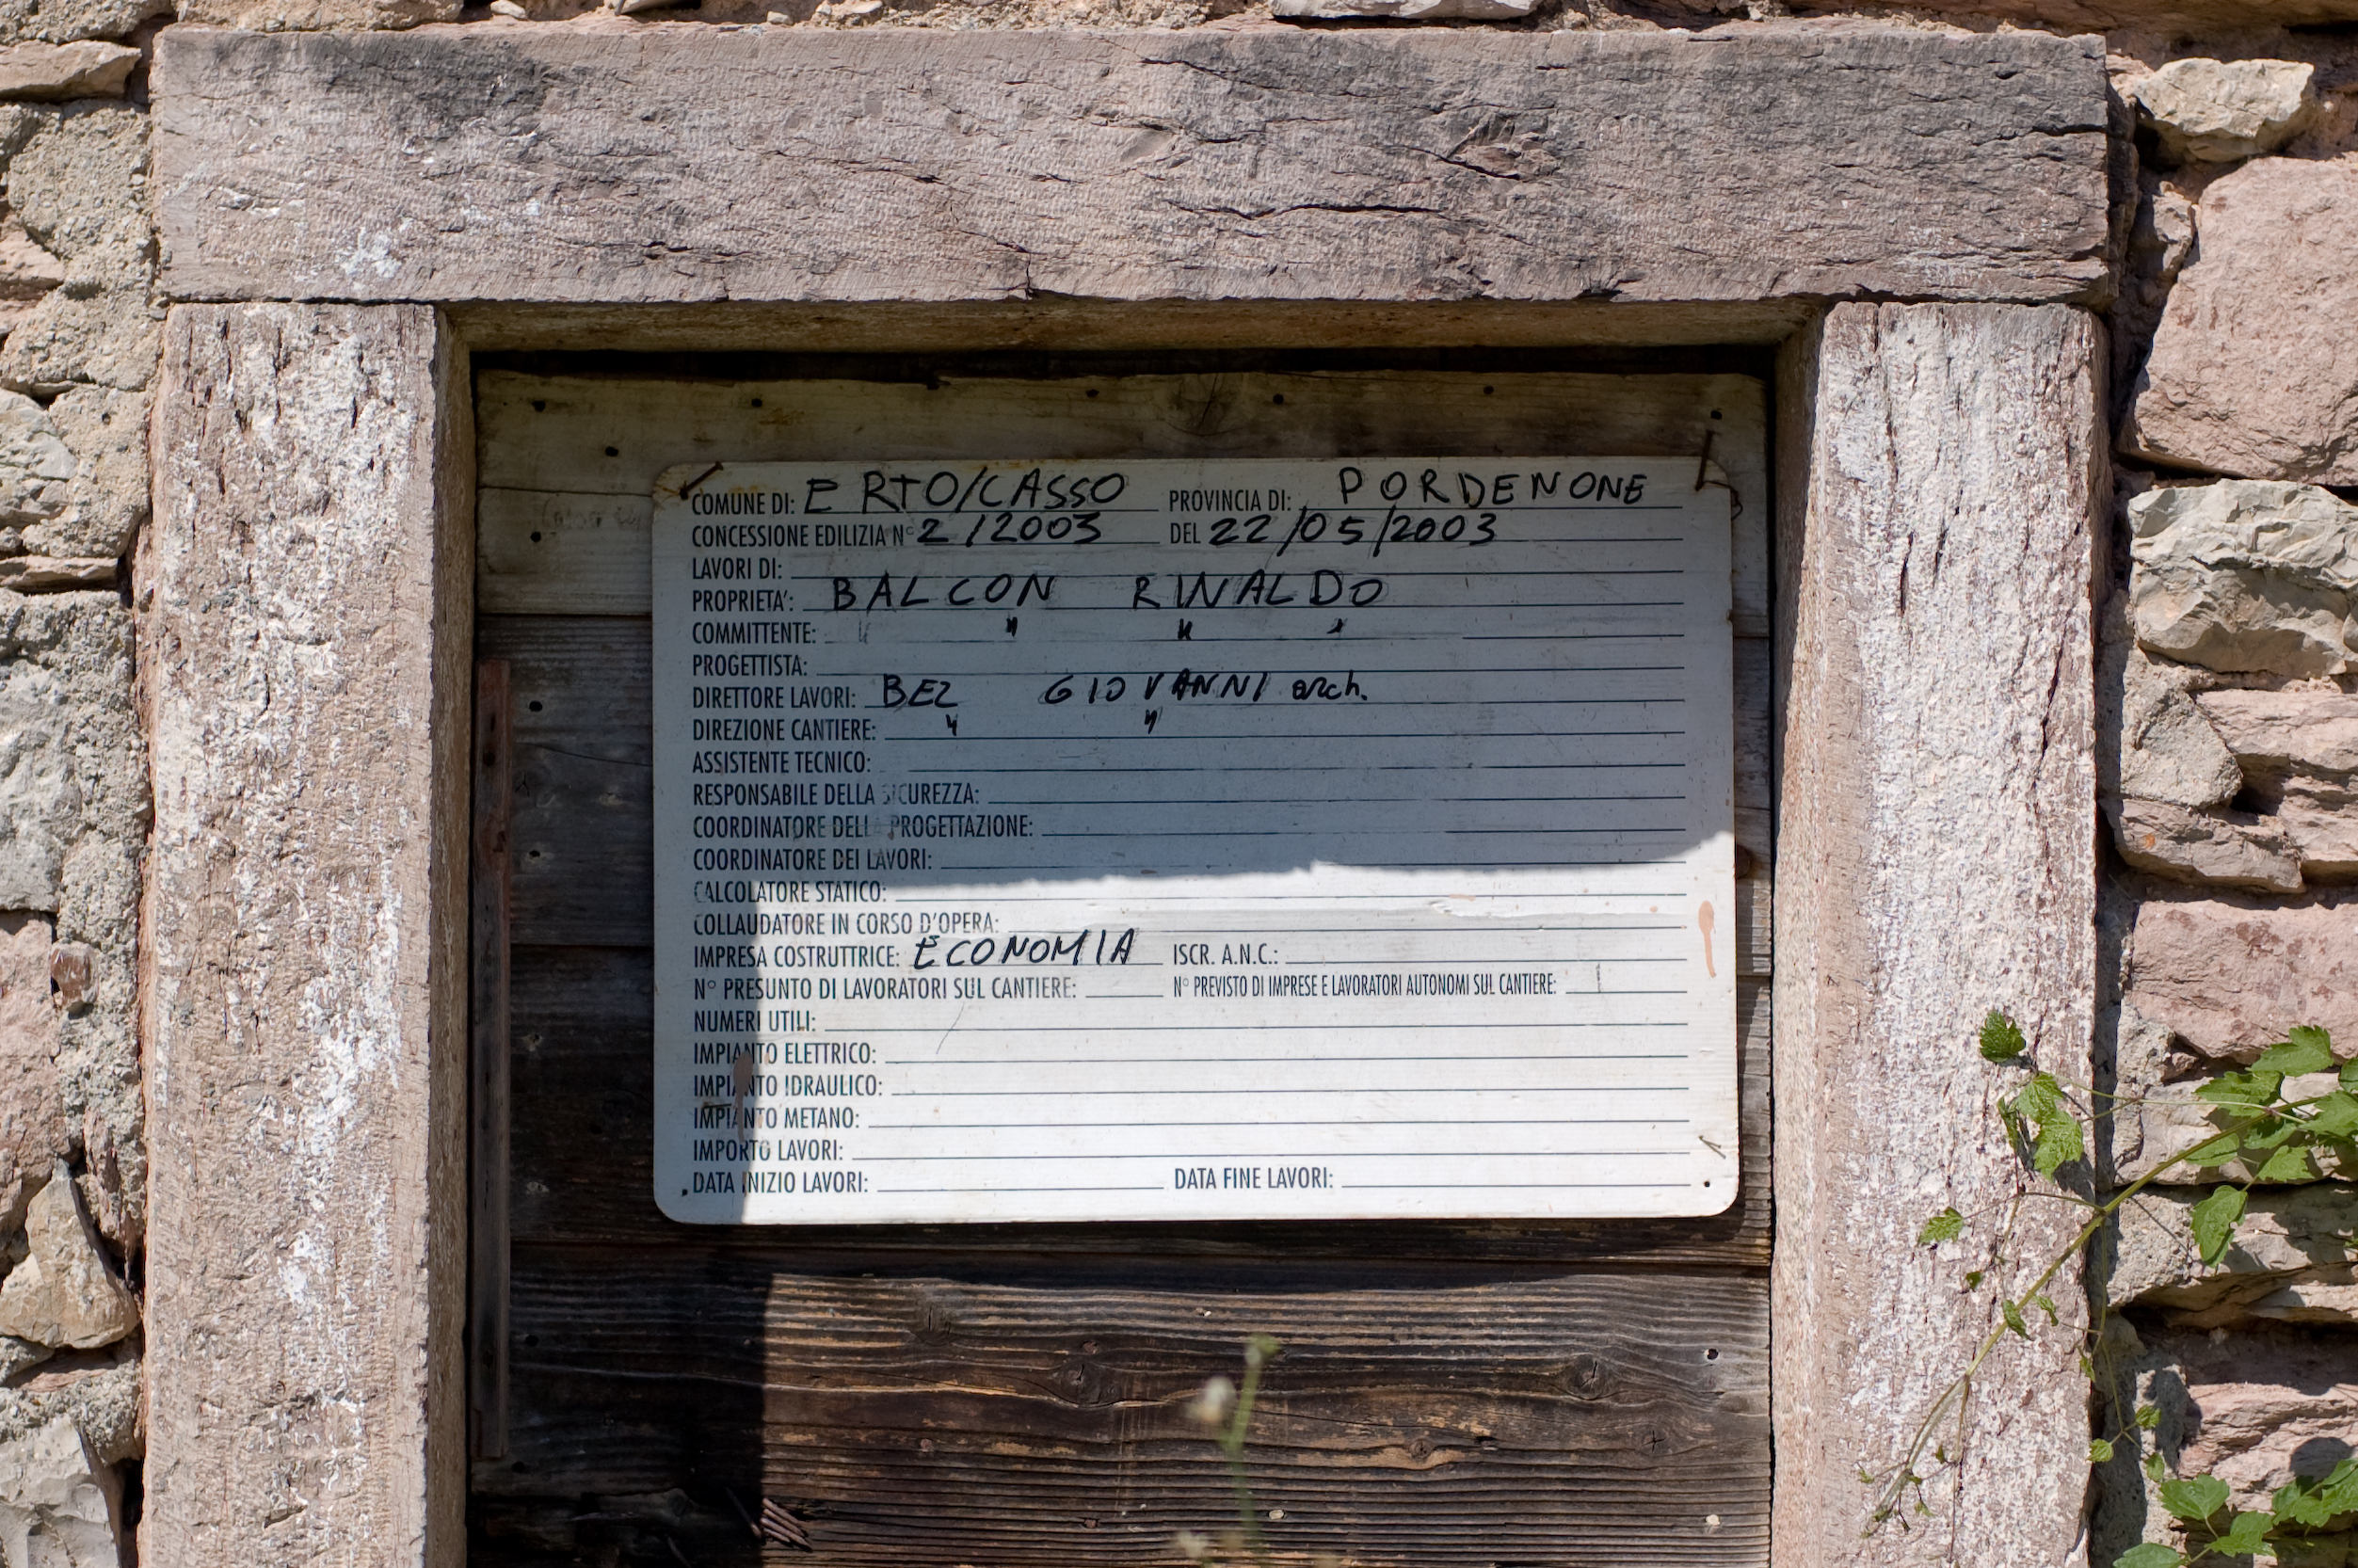 COMUNE DI: ERTO/CASSO PROVINCIA DI: PORDENONE
CONCESSIONE EDILIZIA N° 2/2003 DEL 22/05/2003
LAVORI DI:
PROPRIETA': BALCON RINALDO
COMMITTENTE: " " " "
PROGETTISTA:
DIRETTORE LAVORI: BEZ GIOVANNI arch.
DIREZIONE CANTIERE: " "
ASSISTENTE TECNICO:
RESPONSABILE DELLA SICUREZZA:
COORDINATORE DELLA PROGETTAZIONE:
COORDINATORE DEI LAVORI:
CALCOLATORE STATICO:
COLLAUDATORE IN CORSO D'OPERA:
IMPRESA COSTRUTTRICE: ECONOMIA ISCR. A.N.C.:
N° PRESUNTO DI LAVORATORI SUL CANTIERE: N° PREVISTO DI IMPRESE E LAVORATORI AUTONOMI SUL CANTIERE:
NUMERI UTILI:
IMPIANTO ELETTRICO:
IMPIANTO IDRAULICO:
IMPIANTO METANO:
IMPORTO LAVORI:
DATA INIZIO LAVORI: DATA FINE LAVORI: